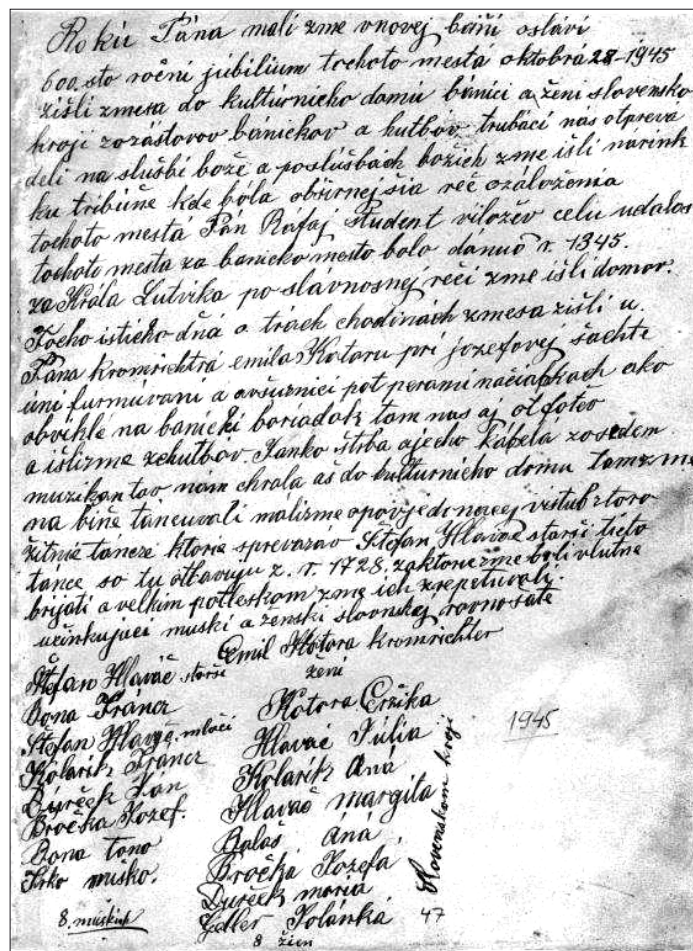 Rokú Pána mali zme vnovej báňi oslávi
600 sto roční júbilium tochoto mestá oktobrá 28-1945
zišli zmesa do kultúrnicho domú báníci a ženi slovensko
kroji zozástovov báníckov a hutbov trubáci nás otprevá
deli na slušbi bože a poslúšbách božich zme išli nárink
ku tribúňe kde bóla obšírnejšia reč ozáloženia
tochoto mesta Pán Ráfaj Student viložév celu udalos
tochoto mesta za banícko mesto bolo dánuo r. 1345.
za Krála Lutvika po slávnosnej reči zme išli domov.
Tocho isticho dňá o trách chodinách zmesa zišli u.
Pána kromrichtrá emila Kotoru pri jozefovej šachte
úni furmúvaní a ošusznici pot perami náčiapkach ako
obvikle na banícki boriadok tam nas aj otfotev
a išlizme zehutbov. Janko štrba ajecho kábela zosedem
muzikantov nám chrala aš do kulturnicho domu tamzme
na biňe tancuvali malizme opovjedonocej vistub ztoro
žitnie táncze ktorie sprevazáv Štefan Hlaváč starší tieto
tance so tu otbavuju z. r. 1728. zaktorie zme boli vlutne
brijáti a velkim potleskom zme ich zrepetuvali.
učinkujúci muski a ženski slovenskej rovnošate
Emil Kotora kromrichter
Štefan Hlaváč starší
Bona Fráncz
Štefan Hlaváč mlači
Kolarik Fráncz
Ďurček Ján
Bročka Jozef.
Bona tono
Trko miško.
8. muskich
ženi
Kotora Eržika
Hlavač Júlia
Kolarik Aná
Hlavač margita
Balaš Áná
Bročká Jozefá
Ďurček maria
Gdler Jolánka
8 žien
Slovenskom kroji
1945
47